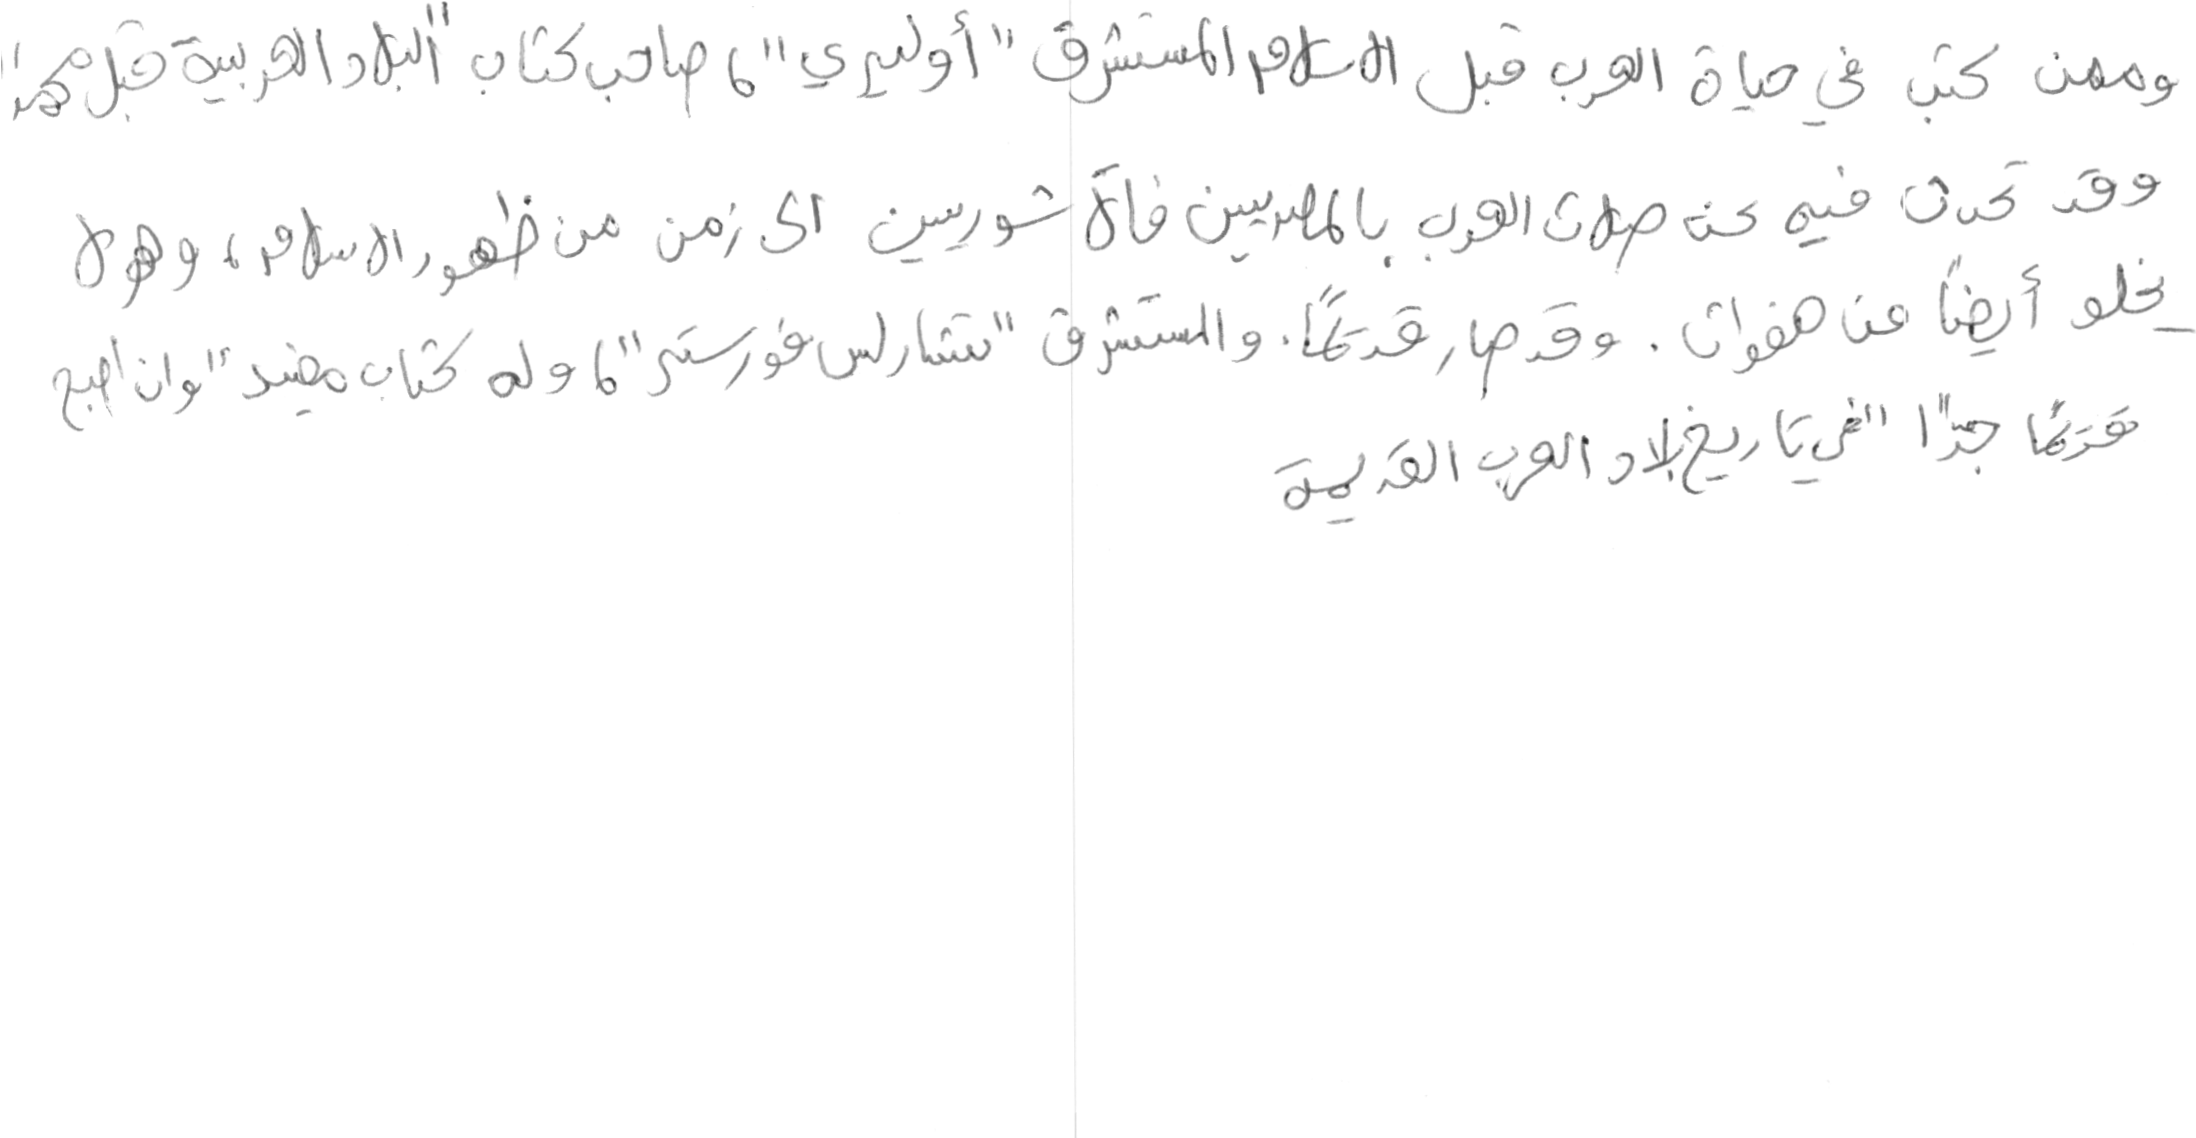 وممن كتب في حياة العرب قبل الاسلام المستشرق "أوليري"، صاحب كتاب "البلاد العربية قبل محمد"
وقد تحدث فيه عن صلات العرب بالمصريين فالآشوريين الى زمن من ظهور الاسلام، وهو لا
يخلو أيضًا من هفوات. وقد صار قديمًا. والمستشرق "تشارلس فورستر"، وله كتاب مفيد "وان أصبح
قديمًا جدًا "في تاريخ بلاد العرب القديمة